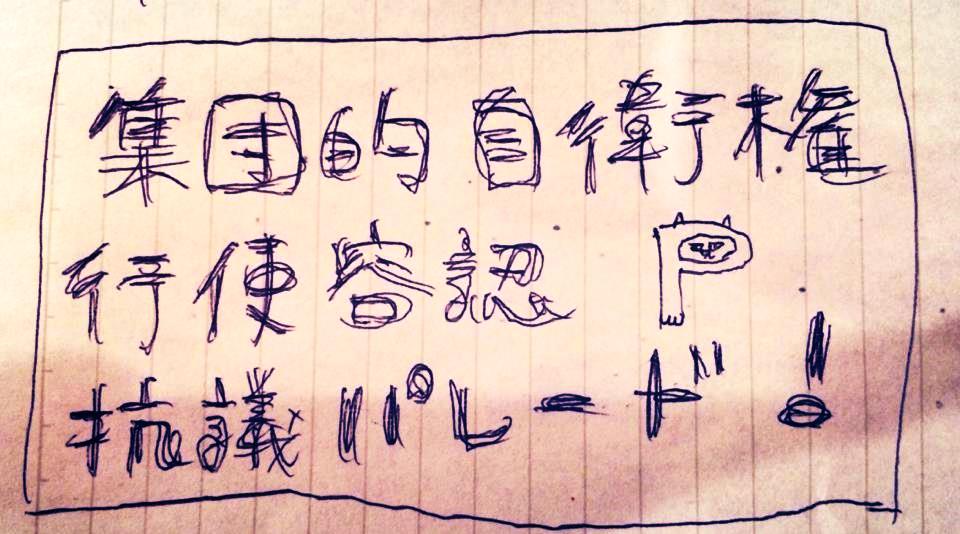 集団的自衛権
行使容認 P
抗議パレード!